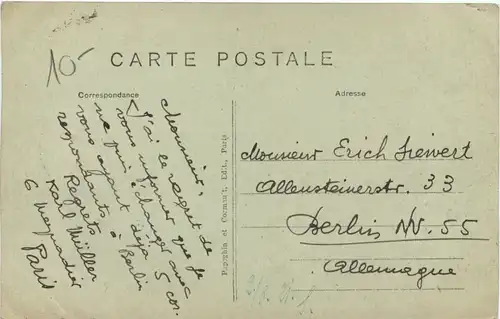 10-
CARTE POSTALE
Correspondance
Adresse
Monsieur,
J'ai le regret de
vous informer que je
ne puis échanger avec
vous ayant déjà 5 cor.
respondants à Berlin
Regrets
Karl Müller
6 Meynadier
Paris
Edit., Paris
Monsieur Erich Siewert
Allensteinerstr. 33
Berlin NO. 55
Allemagne